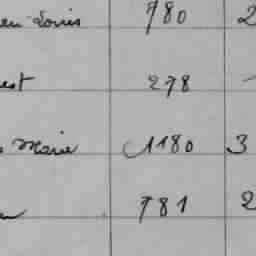 Louis 780 2
278
Marie 1180 3
781 2